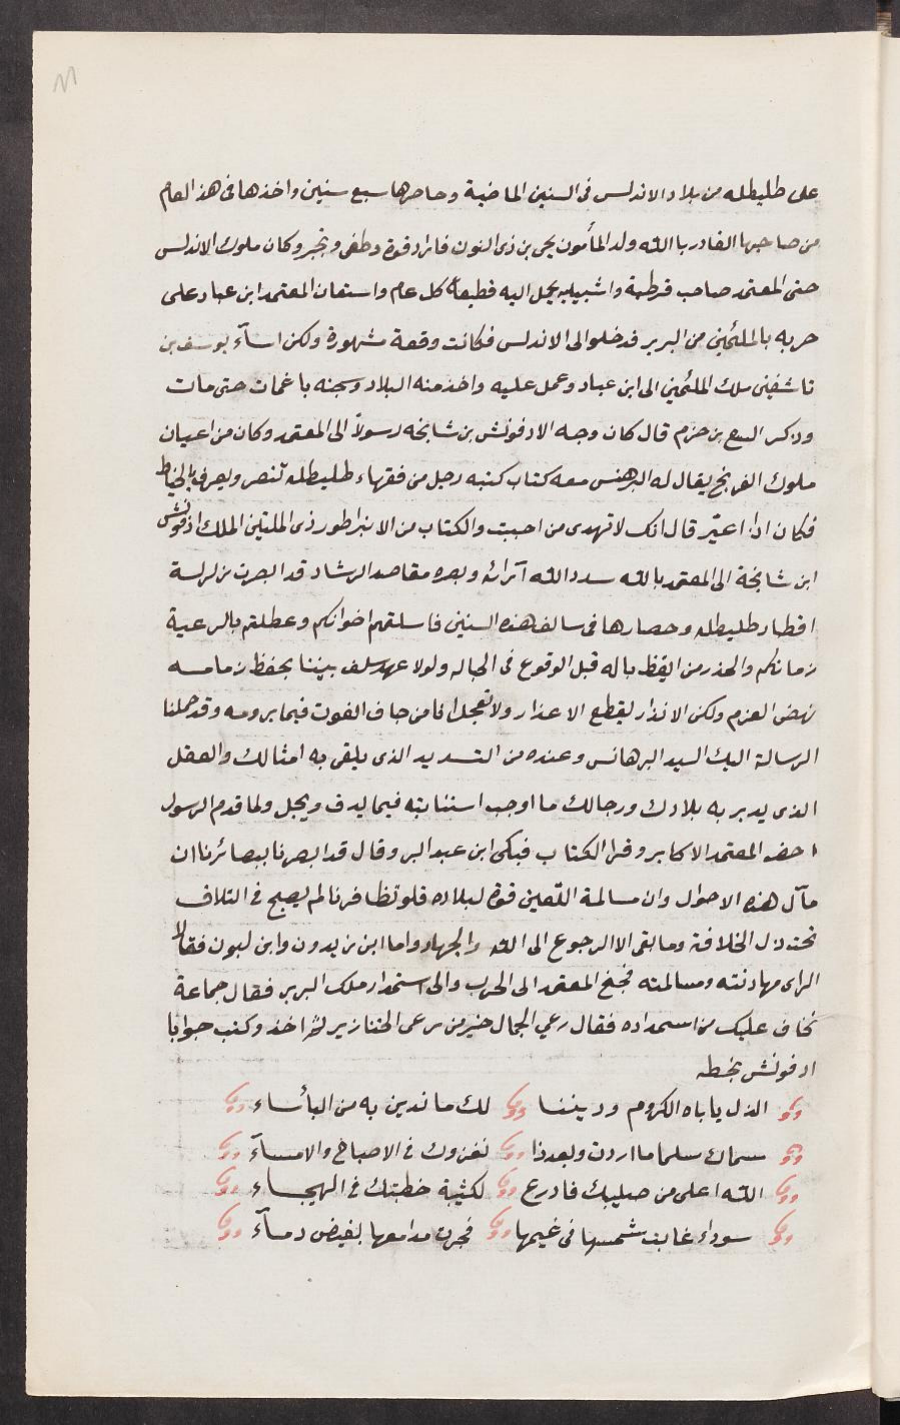 على طليطله من بلاد الاندلس فى السنين الماضية وحاصرها سبع سنين واخذها فى هذ العام
من صاحبها القادر باالله ولد المأمون يحى بن ذى النون فازاد قوة وطغى وتجبر وكان ملوك الاندلس
حتى المعتمد صاحب قرطبة واشبيليه يحمل اليه قطيعة كل عام واستعان المعتمد ابن عباد على
حربه بالملثمين من البربر فدخلوا الى الاندلس فكانت وقعة مشهورة ولكن اسآء يوسف بن
تاشفين ملك الملثمين الى ابن عباد وعمل عليه واخذ منه البلاد وسجنه باغمات حتى مات
وذكر اليسع بن حزم قال كان وجه الادفونش بن شانخه رسولاً الى المعتمد وكان من اعيان
ملوك الفرنج يقال له البرهنس معه كتاب كتبه رجل من فقهاء طليطله تنصر ويعرف بالخياط
فكان اذا اعيّر قال انك لا تهدى من احببت والكتاب من الانبراطور ذى الملتين الملك اذفونش
ابن شانخة الى المعتمد بالله سدد الله آرائه وبصره مقاصد الرشاد قد ابصرت من لزلسة
اقطار طليطله وحصارها فى سالف هذه السنين فاسلقم اخوانكم وعطلتم بالرعية
زمانكم والحذر من ايقظ باله قبل الوقوع فى الحباله ولولا عهد سلف بيننا بحفظ زمامه
نهض العزم ولكن الانذار يقطع الاعذار ولا تعجل الا من خاف الفوت فيما يرومه وقد حملنا
الرسالة اليك السيد البرهانس وعنده من التسديد الذى يلقى به امثالك والعقل
الذى يدبر به بلادك ورجالك ما اوجب استنابته فيما يدق ويجل ولما قدم الرسول
احضر المعتمد الاكابر وقرا الكتاب فبكى ابن عبد البر وقال قد ابصرنا ببصائرنا ان
مآل هذه الاحوال وان مسالمة اللعين قوة لبلاده فلو تظافرنا لم يصبح فى التلاف
تحت ذل الخلافة وما بقى الا الرجوع الى الله والجهاد واما ابن زيدون وابن لبون فقالا
الراى مهادنته ومسالمته فجنح المعتمد الى الحرب والى استمداد ملك البربر فقال جماعة
نخاف عليك من استمداده فقال رعي الجمال خير من رعى الخنازير ثم اخذ وكتب جوابا
ادفونش بخطه
الذل ياباه الكروم وديننا لك ما ندين به من البأساء
سمناك سلما ما اردت وبعد ذا نغزوك فى الاصباح والامسآء
الله اعلى من صليبك فادرع لكثيبة خطبتك فى الهيجاء
سوداء غابت شمسها فى غيمها فجرت مدامعها بفيض دمآء